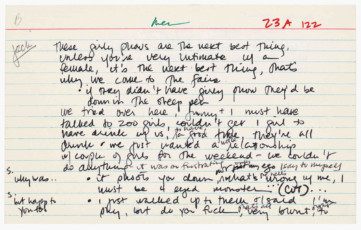 23A 122
These girly shows are the next best thing.
Unless you're very intimate w/ a
female, it's the next best thing, that's
why we come to the fairs
• if they didn't have girly show they'd be
down in the sheep pen
we tried over here, Jimmy & I must have
talked to 200 girls, couldn't get 1 girl to
have drink w/ us, they're all
drunk - we just wanted a relationship
w/ couple of girls for the weekend - we couldn't
do anything it was so frustrating
s. why was.. • it shoots you down, what's wrong w/ me, I
must be a 2 eyed monster (CUT)...
s. but happy to you too • I just walked up to them & said
okay, but do you fuck, very blunt to